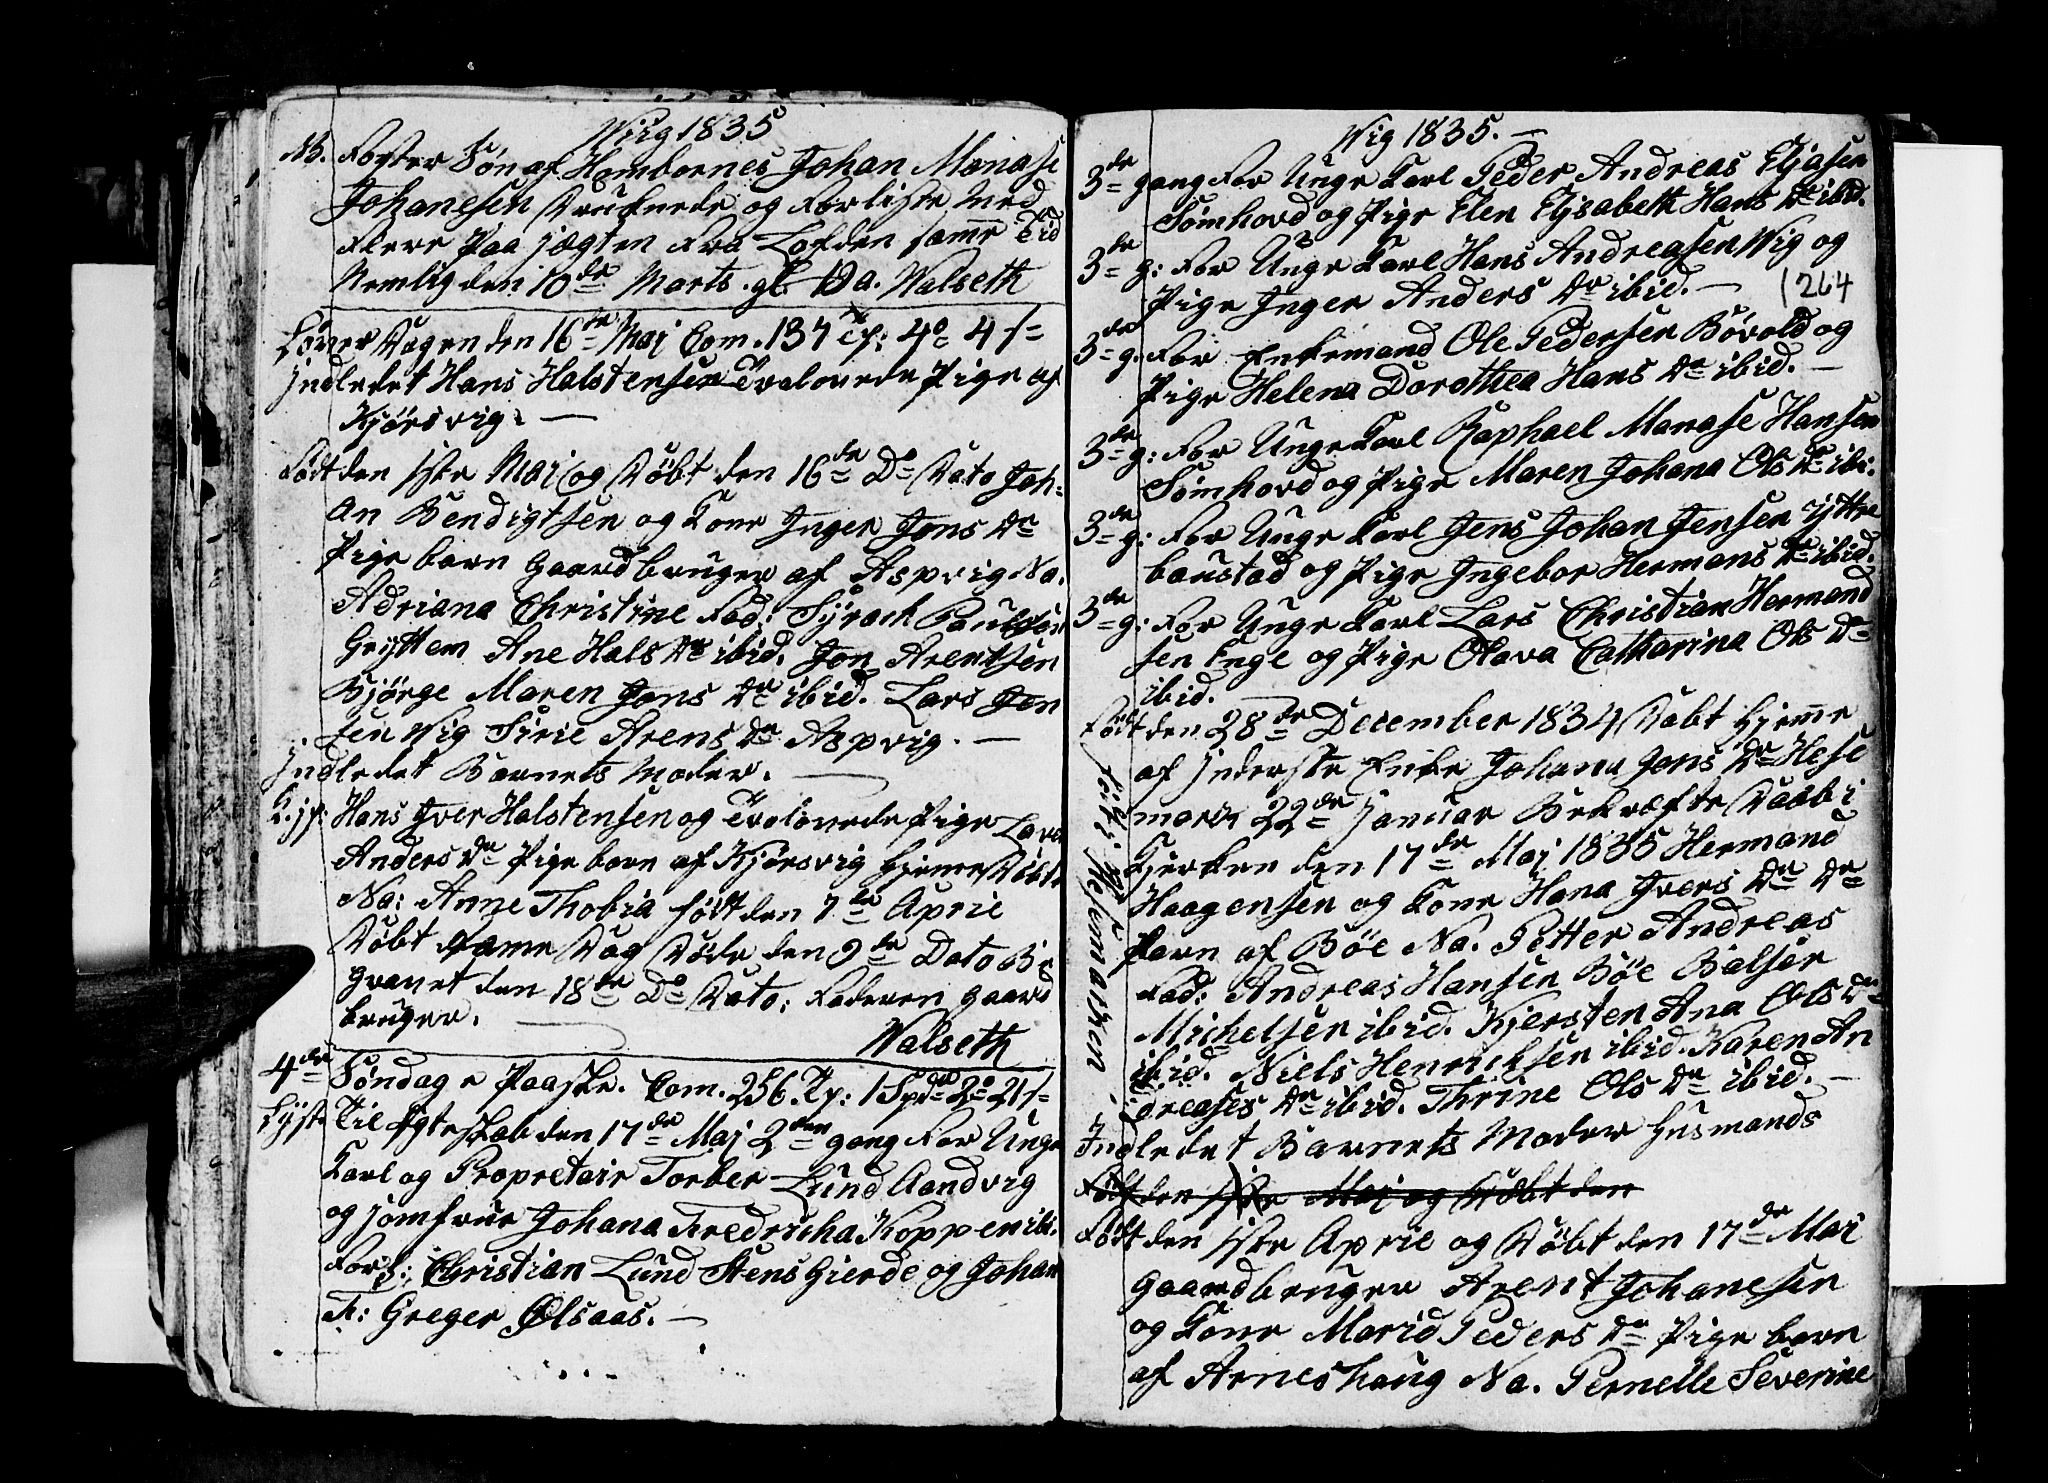 Wiig 1835
NB. Foster Søn af Hombornes Johan Manase
Johanesen Druknede og Forliste Med
Flere Paa Jægten Fra Lofoden samme Tid
Nemlig den 10de Marts. Walseth
Bønes Dagen den 16de Maj Com. 134 4o 4 s
Indledet Hans Halstensen Trolovede Pige af
Kjørsvig. —
Født den 1ste Maj og Døbt den 16de Do Dato Joh=
an Bendigtsen og Kone Inger Jons Dr
Pige barn Gaardbruger af Aspvig Na.
Adriana Christine Fad: Syrach Paulsen
Gryttem Ane Hals Dr ibid. Jon Arentsen
Bjørge Maren Jons Dr ibid. Lars Jen
sen Wig Sirie Arens Dr Aspvig. —
Indledet Barnets Moder.
Hans Iver Halstensen og Trolovede Pige Lava
Anders Dr Pige barn af Kjørsvig Hjemme Døbt
Na: Anne Thobia født den 7de April
Døbt same Dag Døde den 9de Dato Be
gravet den 18de Do Dato: Faderen Gaard
bruger.
Walseth
4de Søndag e Paaske. Com. 256 Tp: 1 Spd 2o 21 s
Lyst Til Ægteskab den 17de Maj 2den gang For Unge
Karl og Propretair Torber Lund Aandvig
og Jomfrue Johana Fredricha Koppen ibi.
Forl: Christian Lund Stens Gierde og Johan
F: Greger Ølsaas. —
Wig 1835. —
264
3de gang For Unge Karl Peder Andreas Eljasen
Sømhovd og Pige Elen Elisabeth Hans Dr ibid.
3de g: For Unge Karl Hans Andreasen Wig og
Pige Inger Anders Dr ibid. —
3de g. For Enkemand Ole Pedersen Bøvold og
Pige Helena Dorothea Hans Dr ibid. —
3de g: For Unge Karl Raphael Manase Hansen
Sømhovd og Pige Maren Johana Ols Dr ibi.
3de g: For Unge Karl Jens Johan Jensen Yttre
baustad og Pige Ingebor Hermans Dr ibid.
3de g: For Unge Karl Lars Christian Hermand
sen Enge og Pige Olava Catharina Ols Dr
ibid.
Født den 28de December 1834 Døbt Hjemme
af Inderste Enke Johana Jons Dr Hese
maren 22de Januar Bekræfte Daab i
Kjerken den 17de Maj 1835 Hermand
Haagensen og Kone Hana Ivers Dr Dr
barn af Böe Na. Petter Andreas
Fad: Andreas Hansen Böe Balser
Michelsen ibid. Kjersten Ana Ols Dr
ibid. Niels Henricksen ibid. Karen An
dreases Dr ibid. Thrine Ols Dr ibid. —
Indledet Barnets Moder Husmands
født i Hesemaren
Født den 1ste Maj og Døbt den
Født den 1ste April og Døbt den 17de Maj
Gaardbruger Arent Johanesen
og Kone Marid Peders Dr Pige barn
af Arneshaug Na. Pernelle Severine